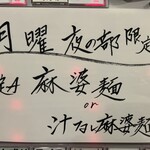 月曜 夜の部限定
A 麻婆麺
or
汁なし麻婆麺